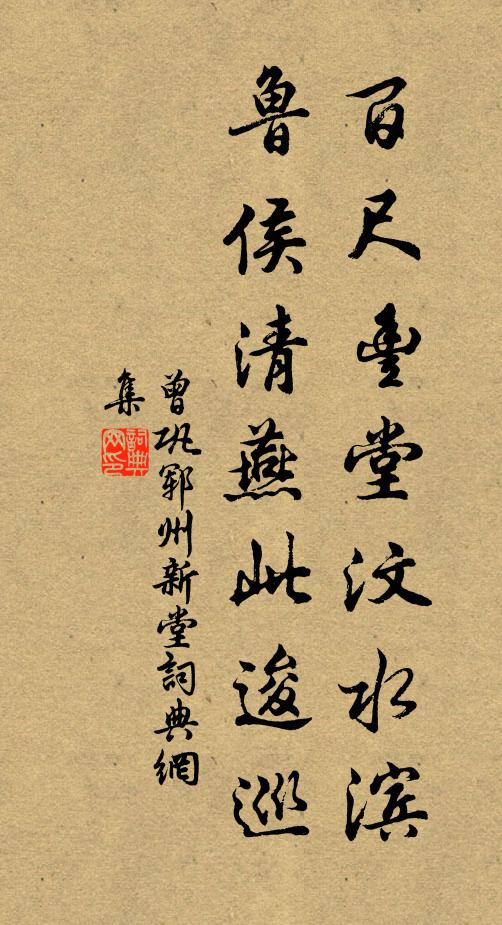 百尺豊堂汶水滨
鲁侯清燕此逡巡
曾巩郓州新堂詞典網
集
詞典
网印